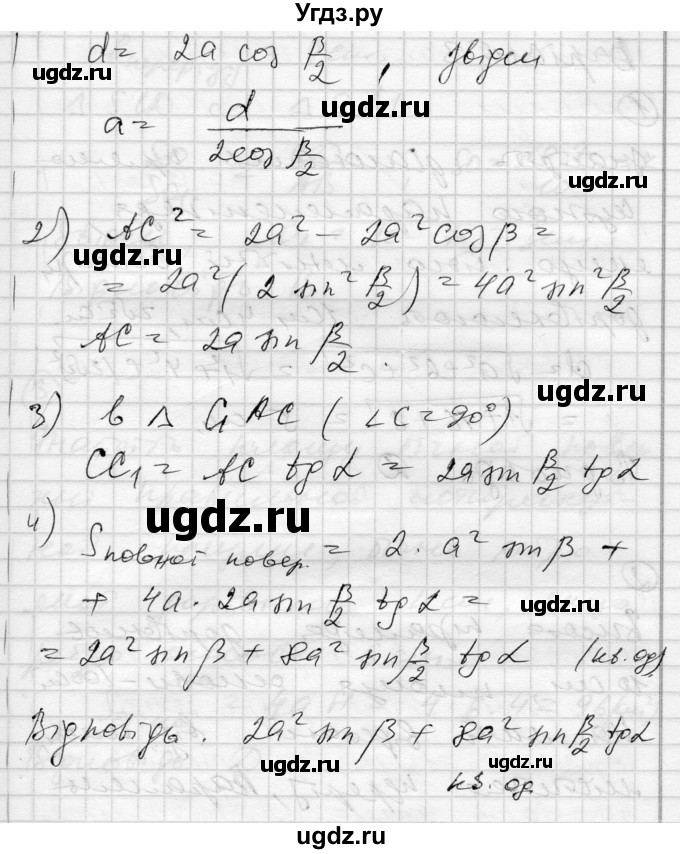 Угдз.ру
d = 2a cos β/2 , звідси
ugdz.ru
a = d / (2cos β/2)
ugdz.ru
2) AC² = 2a² − 2a² cos β =
ugdz.ru
= 2a² ( 2 sin² β/2 ) = 4a² sin² β/2
AC = 2a sin β/2 .
ugdz.ru
3) в Δ C₁AC ( ∠C = 90°)
CC₁ = AC tg α = 2a sin β/2 tg α
ugdz.ru
4) Sповної повер. = 2 · a² sin β +
+ 4a · 2a sin β/2 tg α =
ugdz.ru
= 2a² sin β + 8a² sin β/2 tg α (кв. од)
Відповідь. 2a² sin β + 8a² sin β/2 tg α
ugdz.ru
ugdz.ru
кв. од
ugdz.ru